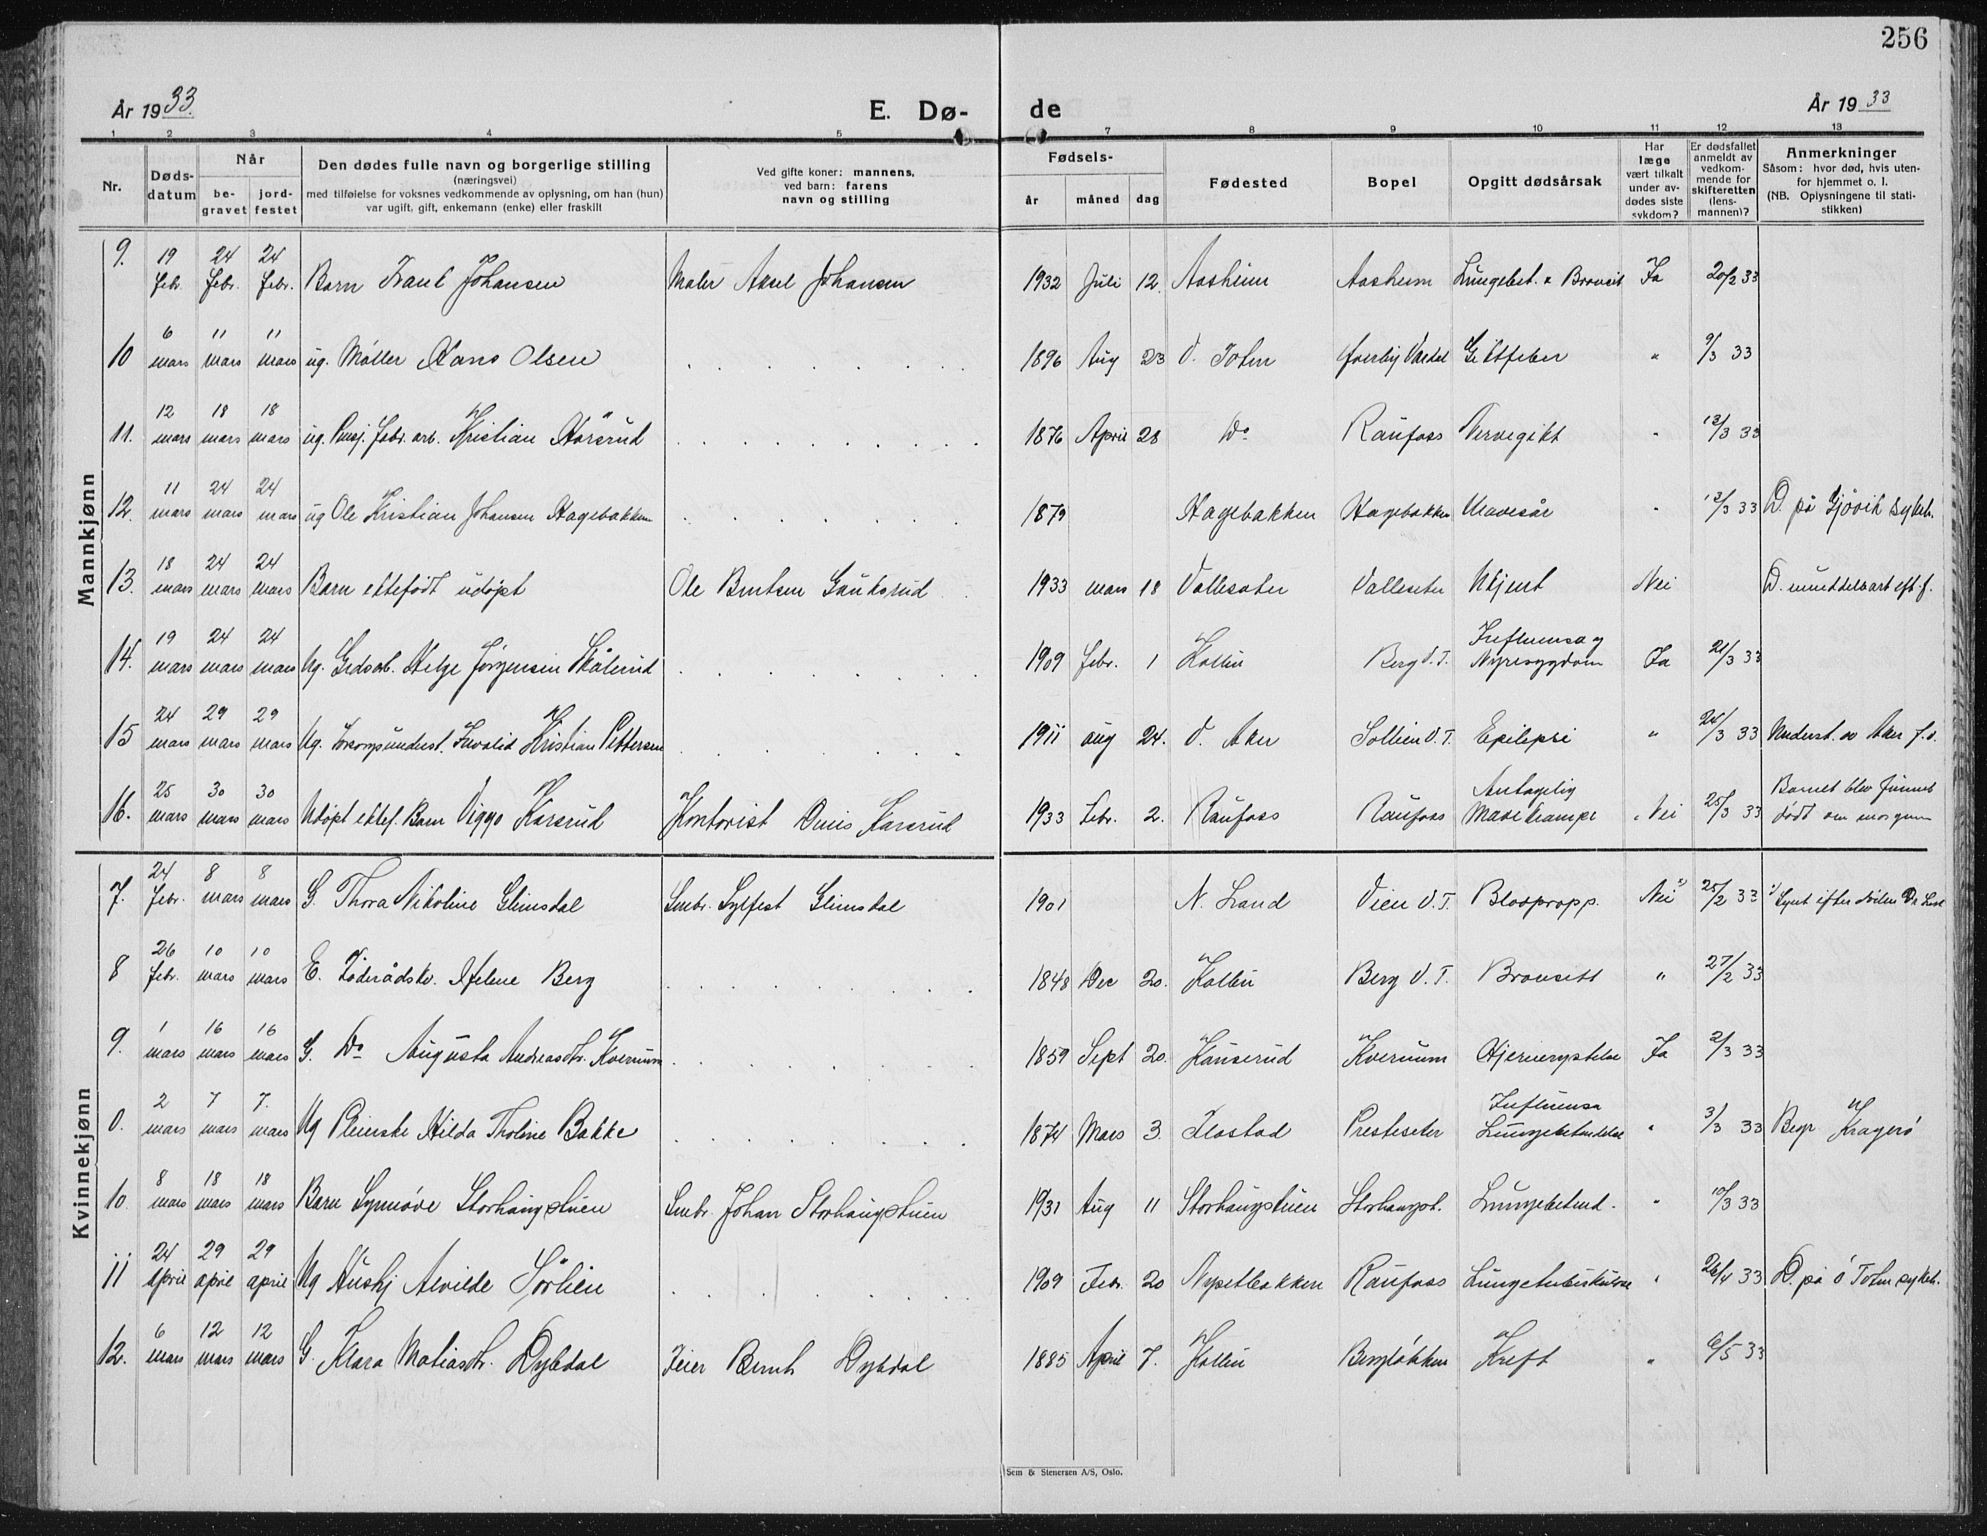 256
År 1933.
E. Dø-
de
År 1933
1 2 3 4 5 7 8 9 10 11 12 13
Nr.
Døds-
datum
Når
be-
gravet
jord-
festet
Den dødes fulle navn og borgerlige stilling
(næringsvei)
med tilføielse for voksnes vedkommende av oplysning, om han (hun)
var ugift, gift, enkemann (enke) eller fraskilt
Ved gifte koner: mannens,
ved barn: farens
navn og stilling
Fødsels-
år
måned
dag
Fødested
Bopel
Opgitt dødsårsak
Har
læge
vært tilkalt
under av-
dødes siste
sykdom?
Er dødsfallet
anmeldt av
vedkom-
mende for
skifteretten
(lens-
mannen)?
Anmerkninger
Såsom: hvor død, hvis uten-
for hjemmet o. l.
(NB. Oplysningene til stati-
stikken)
Mannkjønn
9. 19 febr. 24 febr. 24 febr. Barn Johansen Maler Axel Johansen 1932 Juli 12. Aasheim Aasheim Lungebet. & Bronsit Ja 20/2 33
10 6 mars 11 mars 11 mars ug. Møller Hans Olsen 1896 Aug 23 V. Toten Vardal Giktfeber " 9/3 33
11. 12 mars 18 mars 18 mars ug. Pensj. fabr. arb. Kristian Hørsrud 1876 April 28 Do Raufoss Nervegikt " 13/3 33
12. 11 mars 24 mars 24 mars ug Ole Kristian Johansen Hagebakken 1879 Hagebakken Hagebakken Mavesår " 13/3 33 D. på Gjøvik sykeh.
13. 18 mars 24 mars 24 mars Barn ektefødt udøpt Ole Berntsen Gauksrud 1933 mars 18 Vallesæter Valleseter Ukjent Nei D. umiddelbart eft. f.
14. 19 mars 24 mars 24 mars Ug. Grdsarb. Helge Jørgensen Skålerud 1909 febr. 1 Kollin Berg V. T. Influensa og Nyresygdom Ja 21/3 33
15 24 mars 29 mars 29 mars Ug. Forsorgsunderst. Invalid Kristian Pettersen 1911 aug 24. V. Aker Sollien V. T. Epilepsi " 24/3 33 Underst. av Aker f.v.
16. 25 mars 30 mars 30 mars Udøpt ektef. Barn Viggo Karsrud Kontorist Karsrud 1933 Febr. 2. Raufoss Raufoss Antagelig Mavekrampe Nei 25/3 33 Barnet blev funnet dødt om morgenen
Kvinnekjønn
7. 24 febr. 8 mars 8 mars G. Thora Nikoline Glimsdal Smbr. Sylfest Glimsdal 1901 N. Land Vien V. T. Blodpropp. Nei 1) 25/2 33 1) Synt efter døden Dr.
8 26 febr. 10 mars 10 mars E. Føderådsk. Helene Berg 1848 Dec 20. Kollin Berg V. T. Bronsitt " 27/2 33
9. 1 mars 16 mars 16 mars G. Do Augusta Andreasdtr. Kvernum 1859 Sept 20. Hauserud Kvernum Hjernerystelse Ja 2/3 33
0. 2 mars 7 mars 7. mars Ug Pleierske Hilda Tholine Bakke 1874 Mars 3. Ilastad Presteseter Influensa Lungebetendelse " 3/3 33 Begr Kragerø
10. 8 mars 18 mars 18 mars Barn Synnøve Storhaugstuen Smbr. Johan Storhaugstuen 1931 Aug 11 Storhaugstuen Storhaugst. Lungebetend. " 10/3 33
11 24 april 29 april 29 april Ug Hushj Alvilde Sørlien 1909 Febr. 20 Nysetbakken Raufoss Lungetuberkulose " 26/4 33 D. på Ø Toten sykeh.
12. 6 mars 12 mars 12 mars G. Klara Matiasdtr. Dybdal Feier Bernt Dybdal 1885 April 7. Kollin Bergløkken Kreft " 6/5 33
Sem & Stenersen A/S, Oslo.